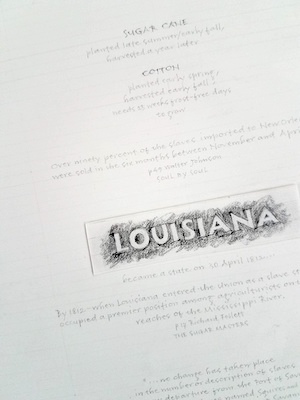 SUGAR CANE
planted late summer/early fall,
harvested a year later
COTTON
planted early spring,
harvested early fall -
needs 25 weeks frost-free days
to grow
Over ninety percent of the slaves imported to New Orle
were sold in the six months between November and April
p49 Walter Johnson
SOUL BY SOUL
LOUISIANA
became a state on 30 April 1812 --
By 1812 - when Louisiana entered the Union as a slave st
occupied a premier position among agriculturists on th
reaches of the Mississippi River,
Richard Follett
THE SUGAR MASTERS
"... no change has taken place
in the number or description of slaves
departure from the Port of Sav